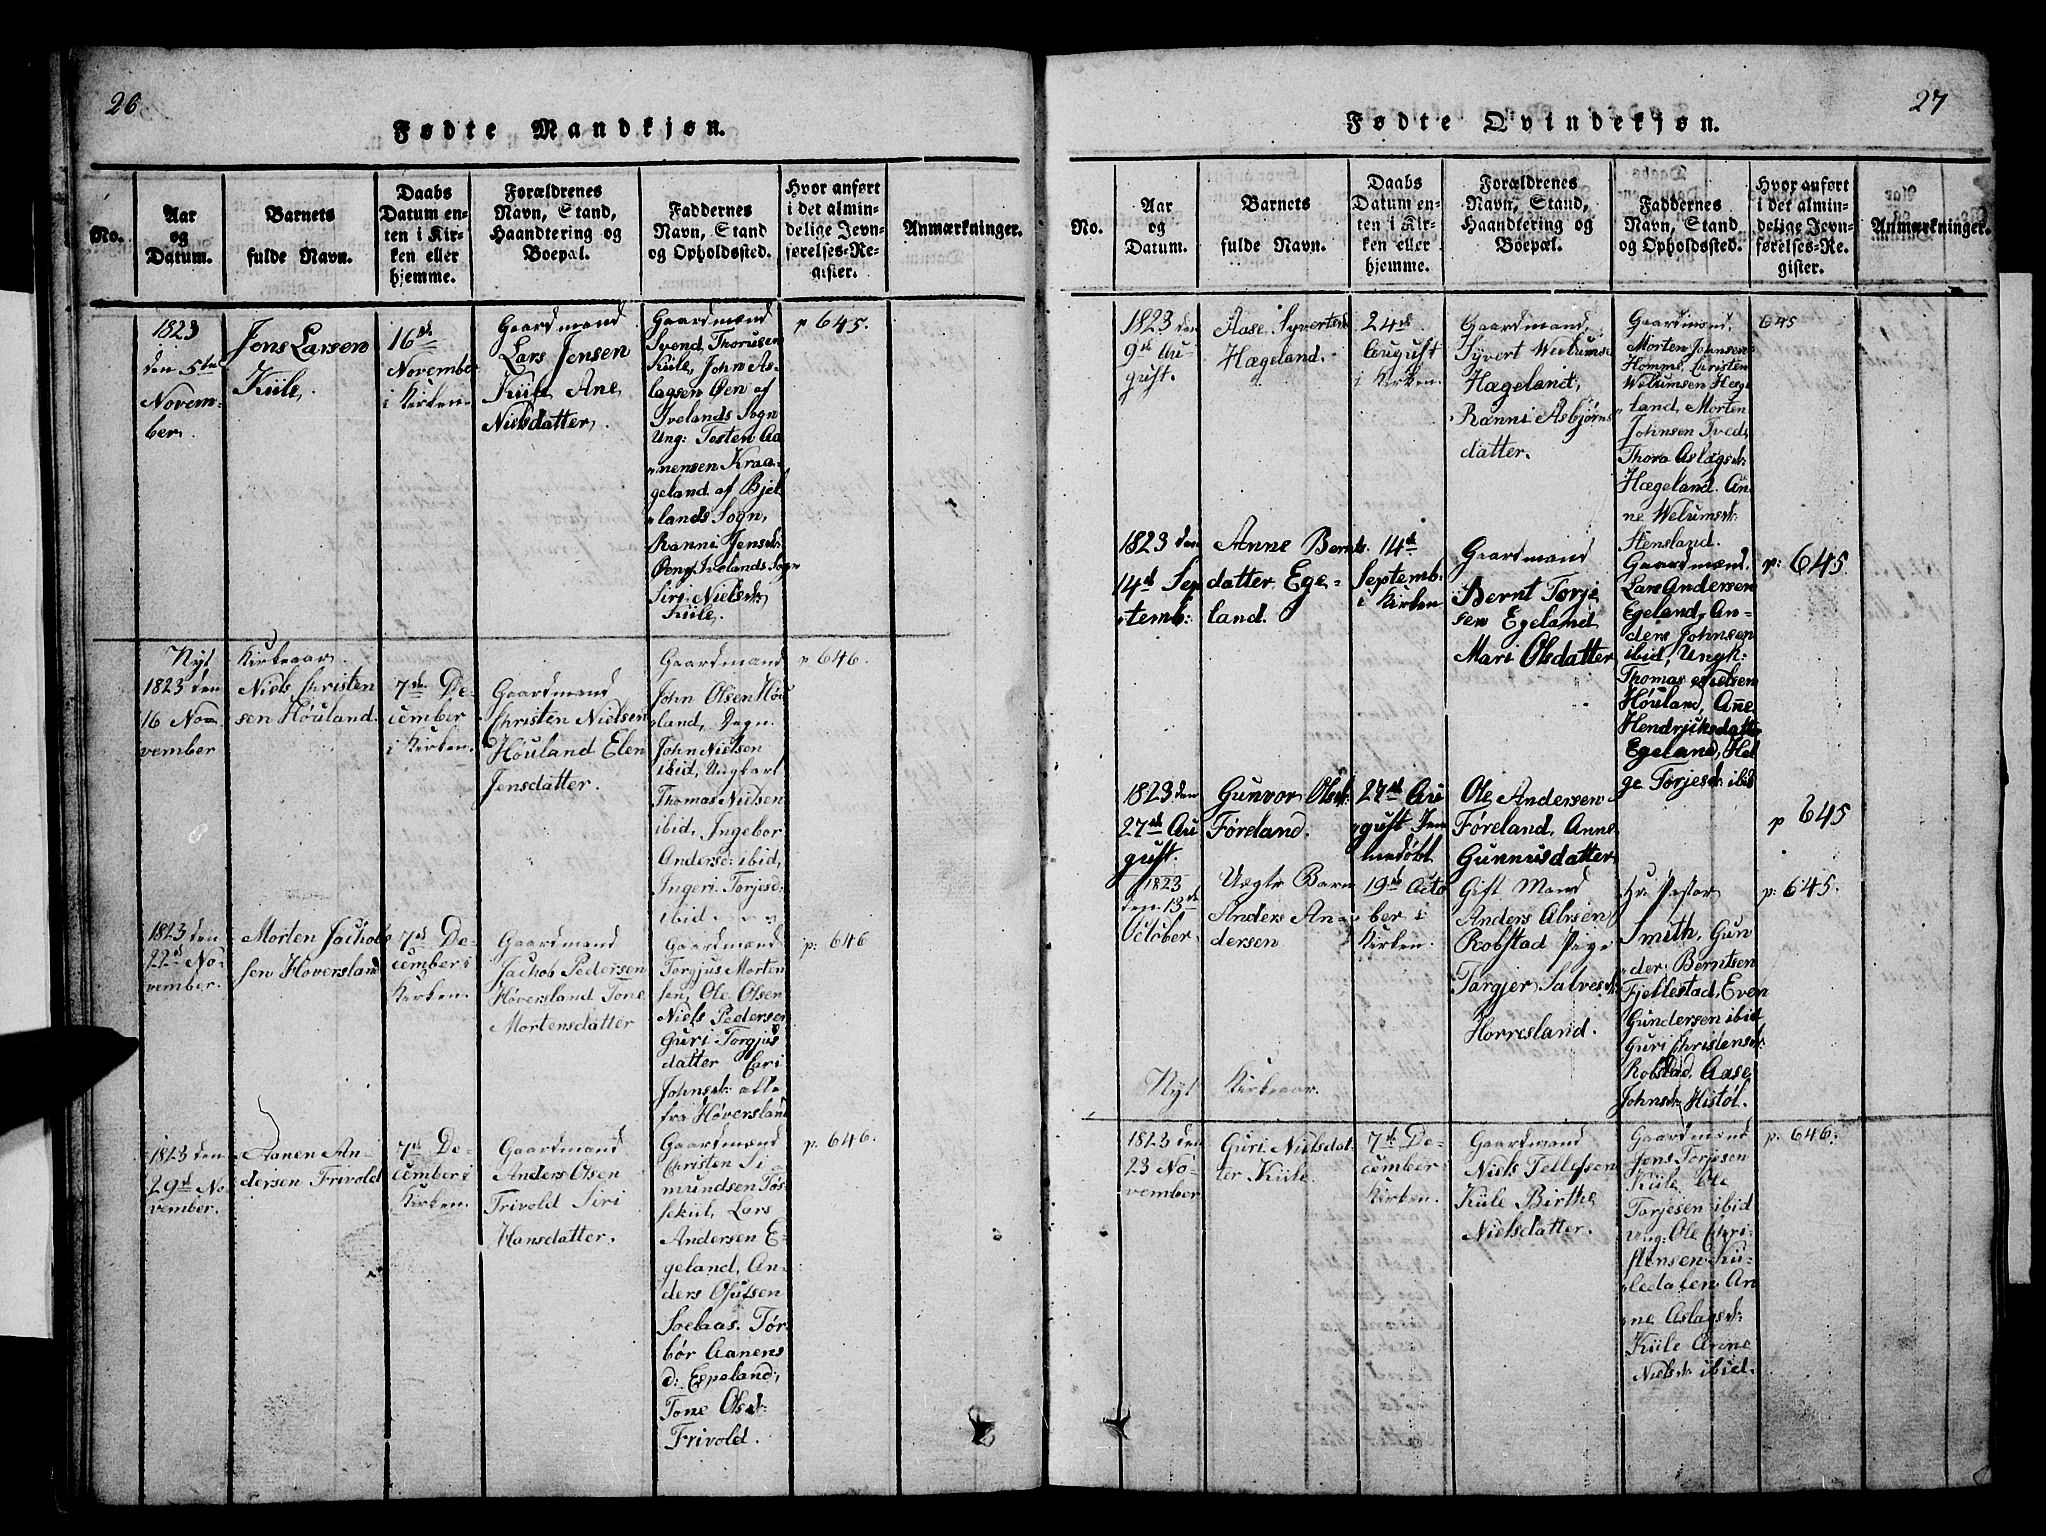 26
Fødte Mandkjøn.
No.
Aar
og
Datum.
Barnets
fulde Navn.
Daabs
Datum en-
ten i Kir-
ken eller
hjemme.
Forældrenes
Navn, Stand,
Haandtering og
Boepæl.
Faddernes
Navn, Stand
og Opholdssted.
Hvor anført
i det almin-
delige Jevn-
førelses-Re-
gister.
Anmærkninger.
1823
den 5te
Novem-
ber.
Jens Larsen
Kiile.
16de
Novembe
i Kirken.
Gaardmand
Lars Jensen
Kiile Ane
Nielsdatter.
Gaardmænd
Svend Thorissen
Kiile, John As-
lagsen Øen af
Ivelands Sogn
Ung: Testen Aa
nensen Kraa-
geland af Bjel
lands Sogn,
Ranni Jensd:
Øen Ivelands Sogn
Siri Nielsd:
Kiile.
p 645.
Nyt Kirkeaar.
1823 den
16 No-
vember
Niels Christen
sen Høuland.
7de De-
cember
i Kirken.
Gaardmand
Christen Nielsen
Høuland Elen
Jensdatter.
Gaardmænd
John Olsen Høu
land,
John Nielsen
ibid, Ungkarl
Thomas Nielsen
ibid, Ingebor
Andersd: ibid,
Ingeri Torjesd:
ibid.
p 646.
1823 den
22d No-
vember.
Morten Jachob
sen Høversland
7de De-
cember i
Kirken.
Gaardmand
Jachob Pedersen
Høversland Tone
Mortensdatter
Gaardmænd
Torgjus Morten
sen, Ole Olsen
Niels Pedersen
Guri Torgjus
datter Cari
Johnsd: alle
fra Høversland
p: 646
1823 den
29de No-
vember.
Aanen An-
dersen Frivold
7de De-
cember i
Kirken.
Gaardmand
Anders Olsen
Frivold Siri
Hansdatter.
Gaardmænd
Christen Si-
mundsen Føs
sekiil, Lars
Andersen E-
geland, An-
ders Osulsen
Solaas. Tør
bør Aanens
d: Espeland,
Tone Olsd:
Frivold.
p. 646.
27
Fødte Qvindekjøn.
No.
Aar
og
Datum.
Barnets
fulde Navn.
Daabs
Datum en-
ten i Kir-
ken eller
hjemme.
Forældrenes
Navn, Stand,
Haandtering og
Boepæl.
Faddernes
Navn, Stand
og Opholdssted.
Hvor anført
i det almin-
delige Jevn-
førelses-Re-
gister.
Anmærkninger.
1823 den
9de Au-
gust.
Aase Syvertsd
Hægeland.
24de
August
i Kirken.
Gaardmand
Syvert Welumse
Hægeland,
Ranni Asbjørns
datter.
Gaardmænd,
Morten Johnsen
Homme, Christen
Welumsen Heg
land, Morten
Johnsen Tved,
Thora Aslagsd:
Hægeland. An
ne Welumsd:
Stensland.
645
1823 den
14de Sep
temb:
Anne Bernts
datter Ege-
land.
14de
Septemb.
i Kirken
Gaardmand
Bernt Torje
sen Egeland
Mari Olsdatter
Gaardmænd,
Lars Andersen
Egeland, An-
ders Johnsen
ibid, Ungk:
Thomas Nielsen
Høuland, Ane
Hendriksdatte
Egeland, Hel
ge Torjesd: ibid
p: 645
1823 den
27de Au
gust.
Gunvor Olsd:
Føreland.
27de Au
gust Jem
medøbt.
Ole Andersen
Føreland, Anne
Gunnusdatter
p 645
1823
den 13de
October
Uægte Barn
Anders An-
dersen
19de Octo
ber i
Kirken.
Gift Mand
Anders Alvsen
Robstad Pige
Targjer Salvesd:
Horresland.
Hr Pastor
Smith, Gun
der Berntsen
Fjellestad, Even
Gundersen ibid
Guri Christensd:
Robstad, Aase
Johnsd: Histøl.
p: 645.
Nyt Kirkeaar.
1823 den
23 No-
vember
Guri Nielsdat
ter Kiile.
7de De-
cember i
Kirken.
Gaardmand
Niels Tellefsen
Kiile Birthe
Nielsdatter.
Gaardmænd
Jens Torjesen
Kiile Ole
Torjesen ibid
Ung: Ole Chri-
stensen Ku-
ledalen An
ne Aslagsd:
Kiile Anne
Nielsd: ibid.
p: 646.